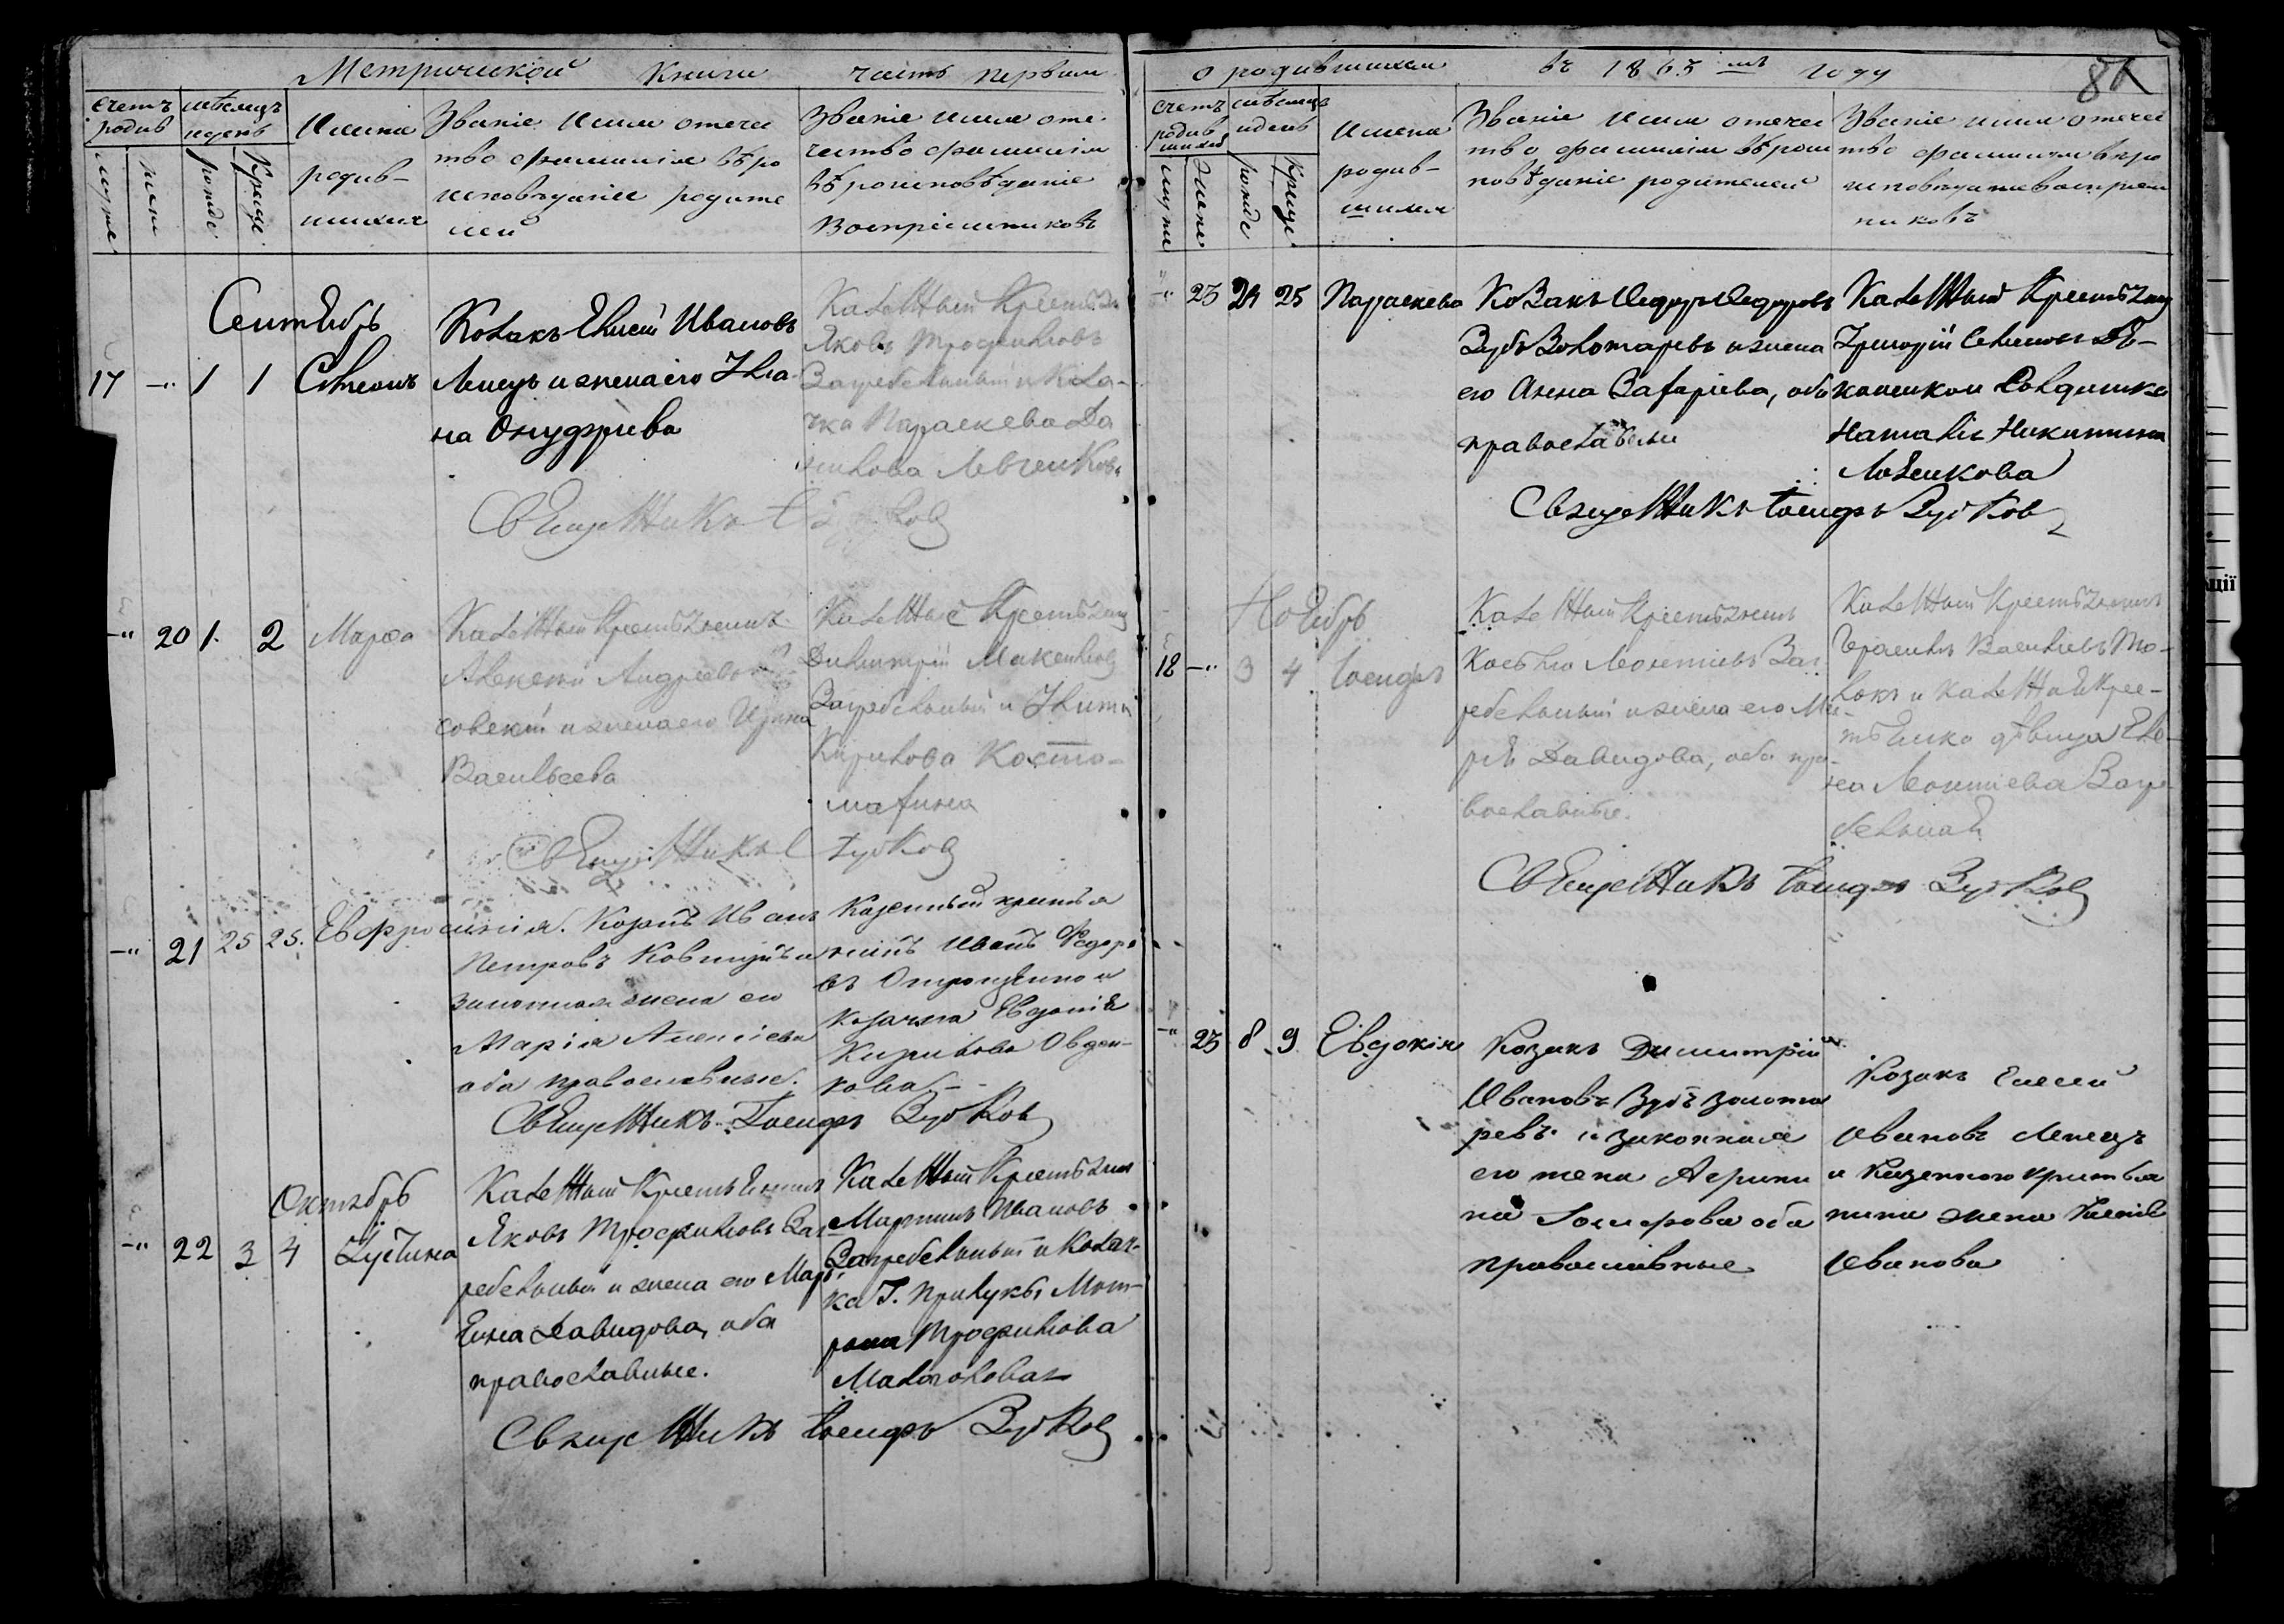 Метрической Книги часть первая
счетъ родив
мѣсяцъ и день
муже
жен
рожде
Креще.
Имена
родив-
шихся
Званіе Имя отече
тво фамилія вѣро
исповѣданіе родите
лей
Званіе имя оте-
чество фамилія
вѣроисповѣданіе
Воспріемниковъ
Сентябрь
17 -" 1 1 Симеонъ
Козакъ Елисей Ивановъ
Лепецъ и жена его Улiа-
на Онуфріева
Казенный Крестьян
Яковъ Трофимовъ
Загребельный и Коза-
чка Параскева Да
нилова Левченков
Священникъ
-" 20 1. 2 Марѳа
Казенный Крестьянинъ
Алексей Андреевъ
совскій и жена его Ирина
Васильева
Казеные Крестьян
Димитрій Максимов
Загребельный и Улита
Кирилова Косто-
махина
Священникъ Зубков
-" 21 25 25. Евфросинія.
Козакъ Иванъ
Петровъ Ковтунъ и
законная жена его
Марія Алексіева
оба православные.
Казенный крестья
нинъ Иванъ Федоро
въ Отрощенко и
козачка Евдокія
Кирилова Овдѣн-
кова. -
Священникъ Іосифъ Зубков
Октябрь
-" 22 3 4 Іустина
Казенный Крестьянинъ
Яковъ Трофимовъ Заг-
ребельный и жена его Марь-
яна Давидова, оба
православные.
Казенный Крестьянин
Мартинъ Ивановъ
Загребельный и Козач-
ка Г. Прилукъ Мот-
рона Трофимова
Малоголовая
Священникъ Іосифъ Зубков
о родившихся въ 1865 мъ году
8
счетъ родив шихся
мѣсяцъ и день
мужe
Жене
рожде
Креще
Имена
родив-
шихся
Званіе Имя отечес
тво фамилія вѣроис
повѣданіе родителей
Званіе имя отечес
тво фамилія вѣро
исповѣданіе воспріем
никовъ
-" 23 24 25 Параскева
Козакъ Ѳедоръ Ѳедоровъ
Зубъ Золотаревъ и жена
его Анна Захаріева, оба
православные
Казенный Крестьянин
Григорій Семеновъ
Наталія Никитина
Лозенкова
Священникъ Іосифъ Зубков
Ноябрь
18 -" 3 4 Іосифъ
Казенный Крестьянинъ
Косьма Леонтіевъ Заг
ребельный и жена его Ма-
рія Давидова, оба пра-
вославные.
Казенный Крестьянинъ
Герасимъ Васильевъ То-
локъ и Казенная Крес-
тьянка дѣвица Еле-
на Леонтіева Загре-
бельная
Священникъ Іосифъ Зубков
-" 23 8 9 Евдокія
Козакъ Димитрій
Ивановъ Зубъ Золота
ревъ и законная
его жена Агрипи
на Іосифова оба
православные
Козакъ Елисей
Ивановъ Лепецъ
и Казенного крестья
нина жена
Иванова
ції